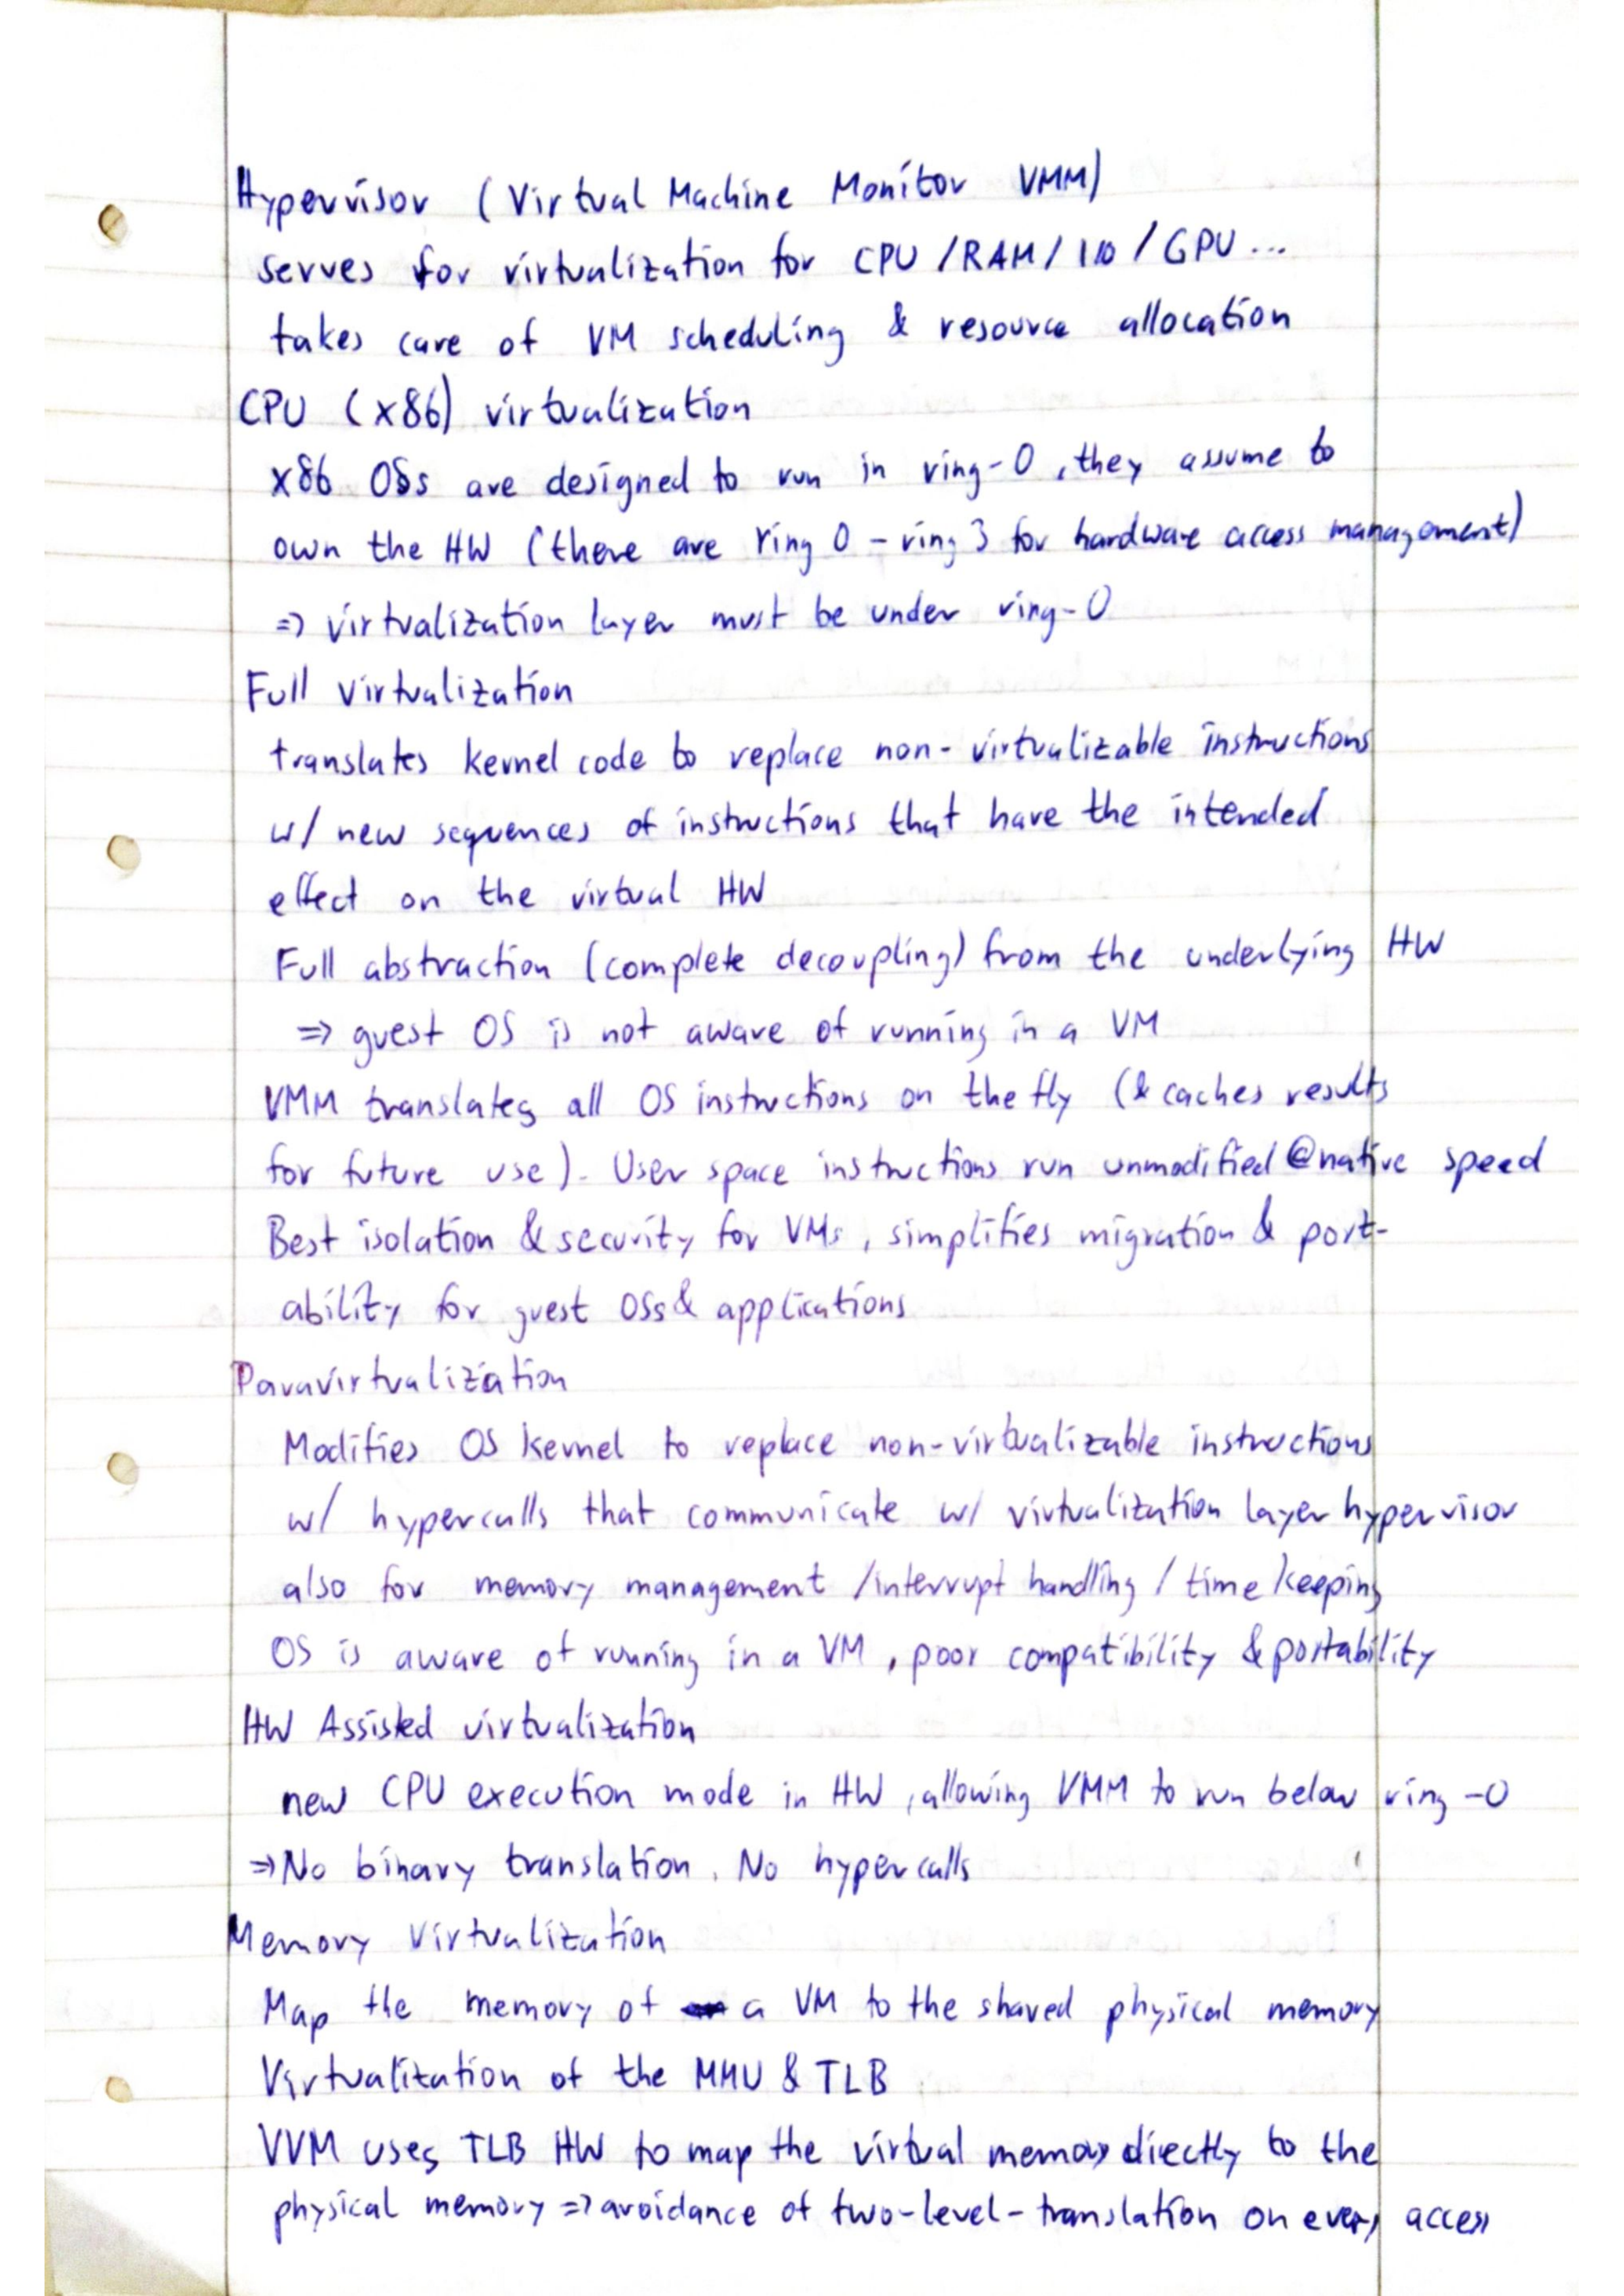 Hypervisor (Virtual Machine Monitor VMM)
serves for virtualization for CPU/RAM/IO/GPU...
takes care of VM scheduling & resource allocation
CPU (x86) virtualization
x86 OSs are designed to run in ring-0, they assume to
own the HW (there are ring 0 - ring 3 for hardware access management)
=> virtualization layer must be under ring-0
Full virtualization
translates kernel code to replace non-virtualizable instructions
w/ new sequences of instructions that have the intended
effect on the virtual HW
Full abstraction (complete decoupling) from the underlying HW
=> guest OS is not aware of running in a VM
VMM translates all OS instructions on the fly (& caches results
for future use). User space instructions run unmodified @native speed
Best isolation & security for VMs, simplifies migration & port-
ability for guest OSs & applications
Paravirtualization
Modifies OS kernel to replace non-virtualizable instructions
w/ hypercalls that communicate w/ virtualization layer hypervisor
also for memory management /interrupt handling / time keeping
OS is aware of running in a VM, poor compatibility & portability
HW Assisted virtualization
new CPU execution mode in HW, allowing VMM to run below ring-0
=> No binary translation. No hypercalls
Memory Virtualization
Map the memory of a VM to the shared physical memory
Virtualization of the MMU & TLB
VVM uses TLB HW to map the virtual memory directly to the
physical memory => avoidance of two-level-translation on every access